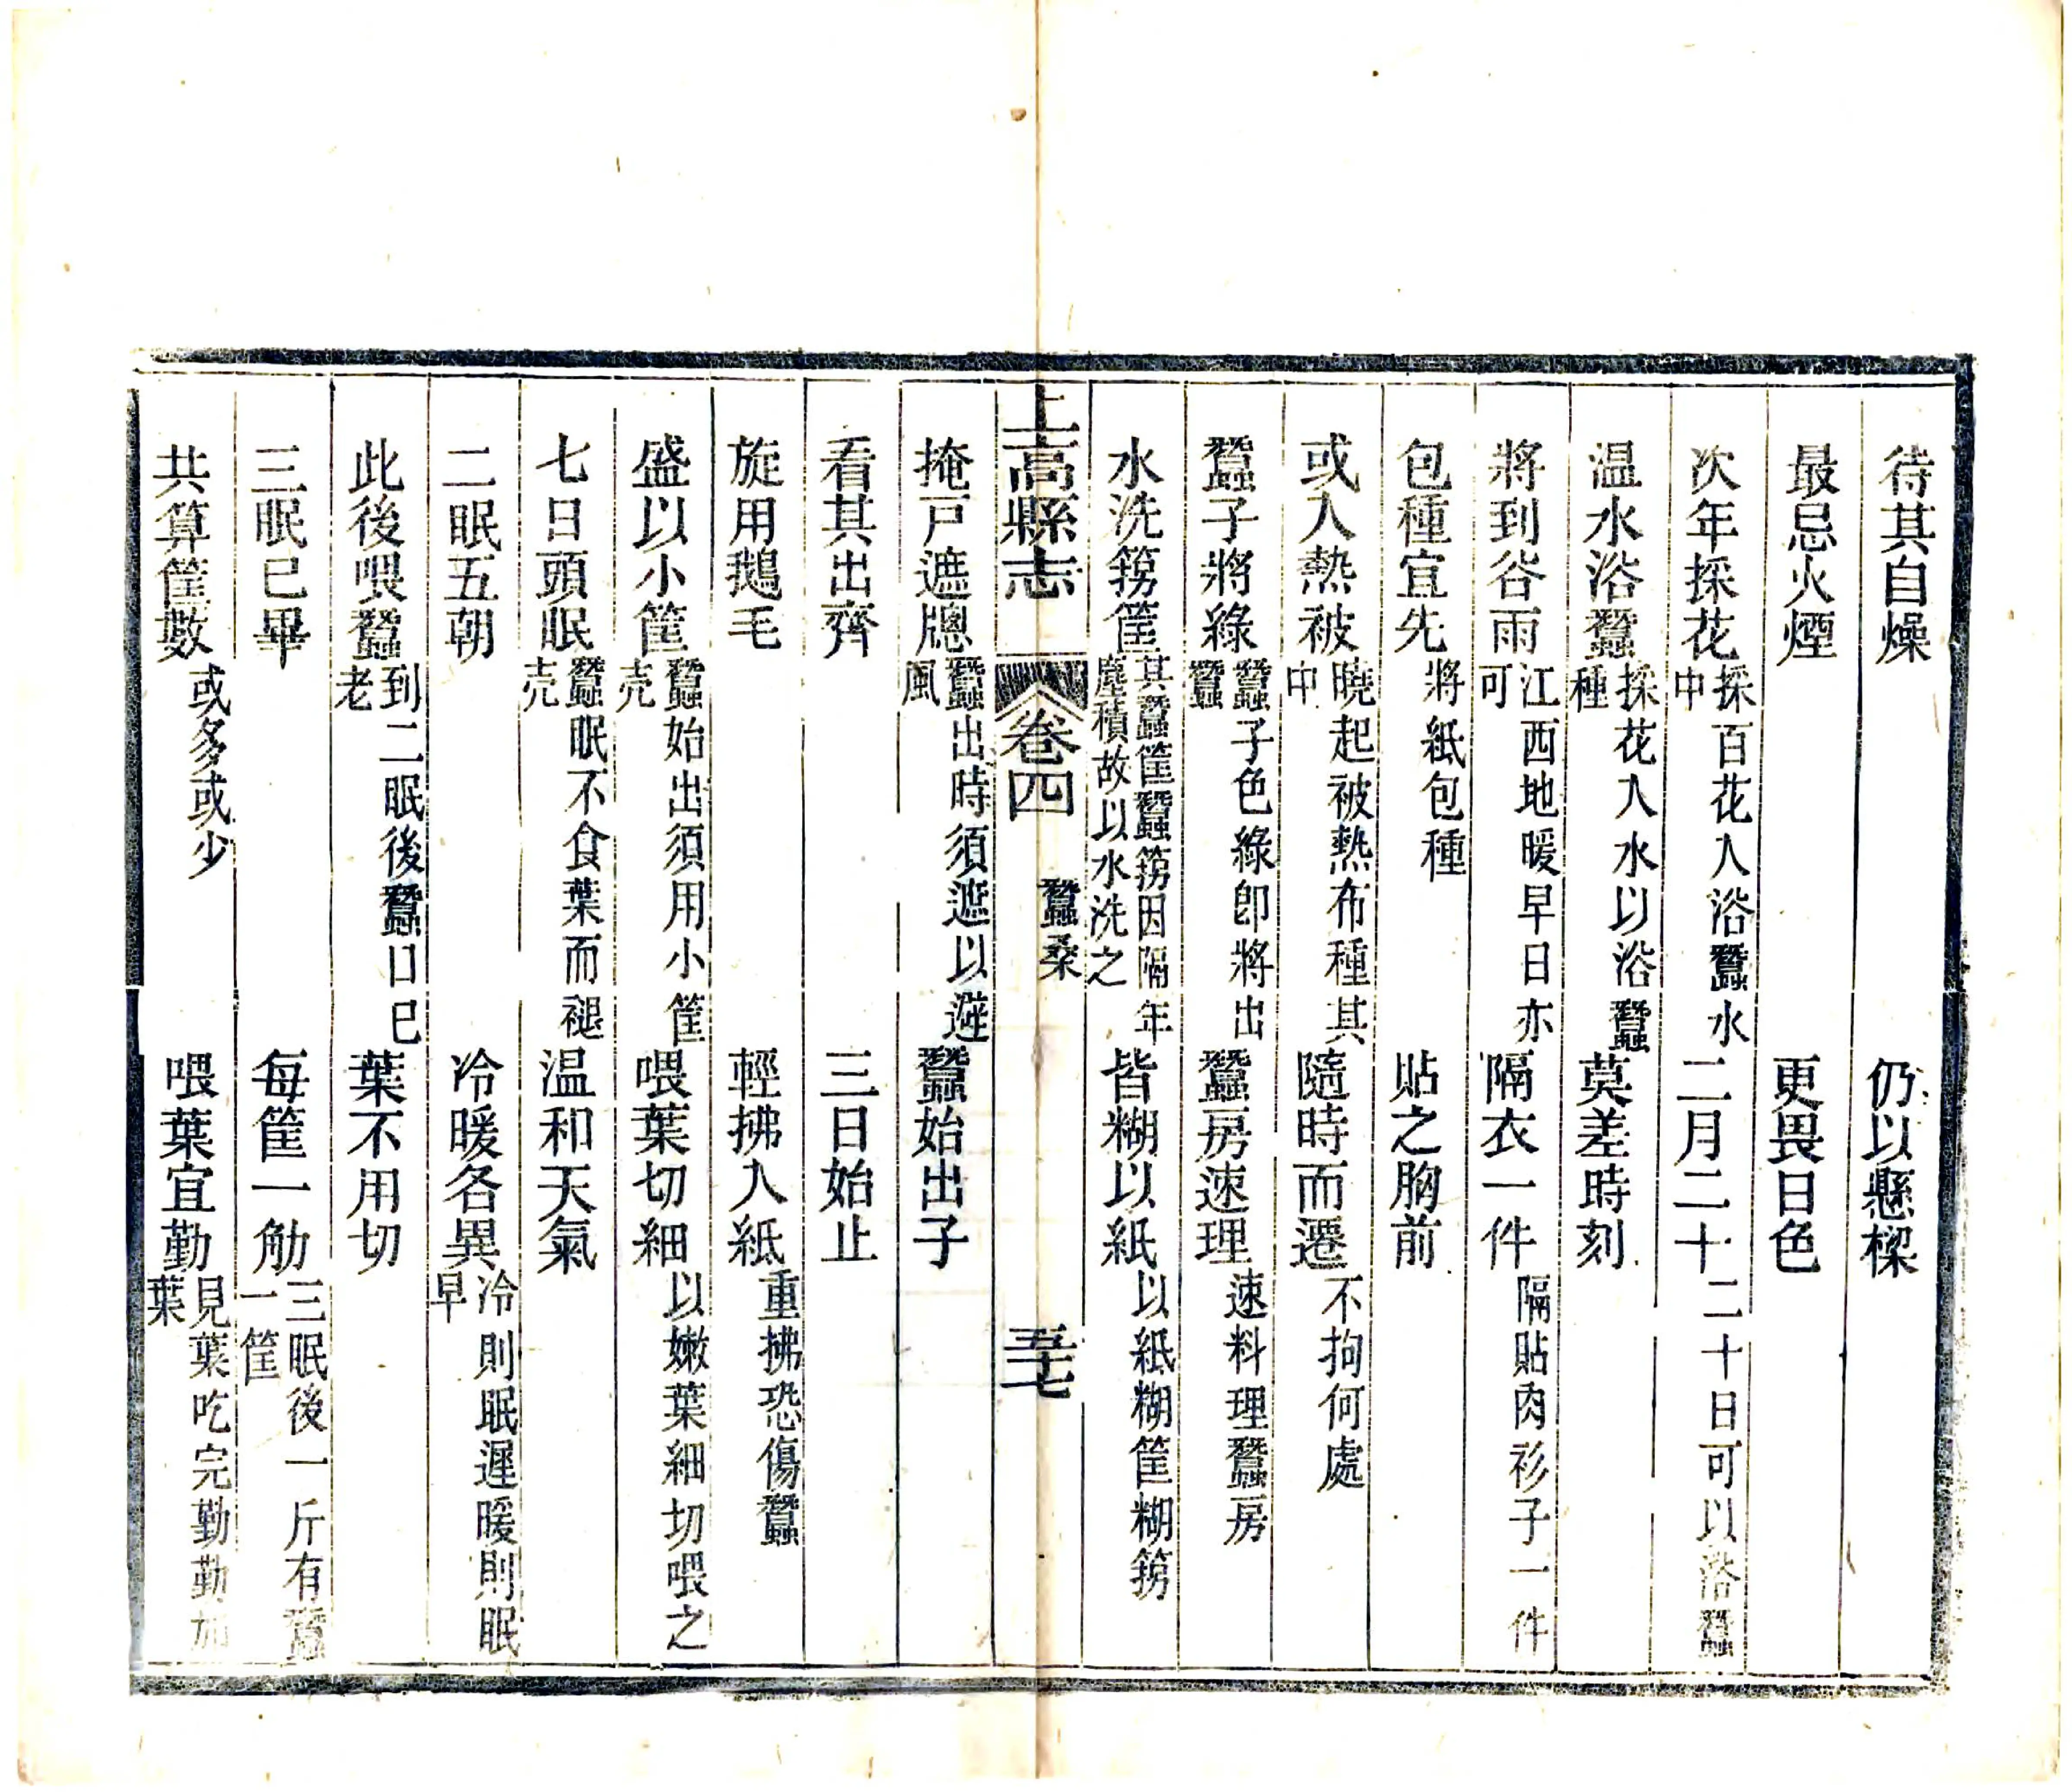 待其自燥 仍以懸樑
最忌火煙 更畏日色
次年採花 採百花入浴蠶水中 二月二十 二十日可以浴蠶
温水浴蠶 採花入水以浴蠶種 莫差時刻
將到谷雨 江西地暖早日亦可 隔衣一件 隔貼肉衫子一件
包種宜先 將紙包種 貼之胸前
或人熱被 曉起被熱布種其中 隨時而遷 不拘何處
蠶子將綠 蠶子色綠即將出蠶 蠶房速理 速料理蠶房
水洗篣筐 其蠶筐蠶篣因隔年塵積故以水洗之 皆糊以紙 以紙糊筐糊篣
上高縣志 卷四 蠶桑 五十七
掩戸遮牕 蠶出時須遮以避風 蠶始出子
看其出齊 三日始止
旋用鵝毛 輕拂入紙 重拂恐傷蠶
盛以小筐 蠶始出須用小筐壳 喂葉切細 以嫩葉細切喂之
七日頭眠 蠶眠不食葉而褪壳 温和天氣
二眠五朝 冷暖各異 冷則眠遲暖則眠早
此後喂蠶 到二眠後蠶口已老 葉不用切
三眠已畢 每筐一觔 三眠後一斤有蠶一筐
共算筐數 或多或少 喂葉宜勤 見葉吃完勤勤加葉